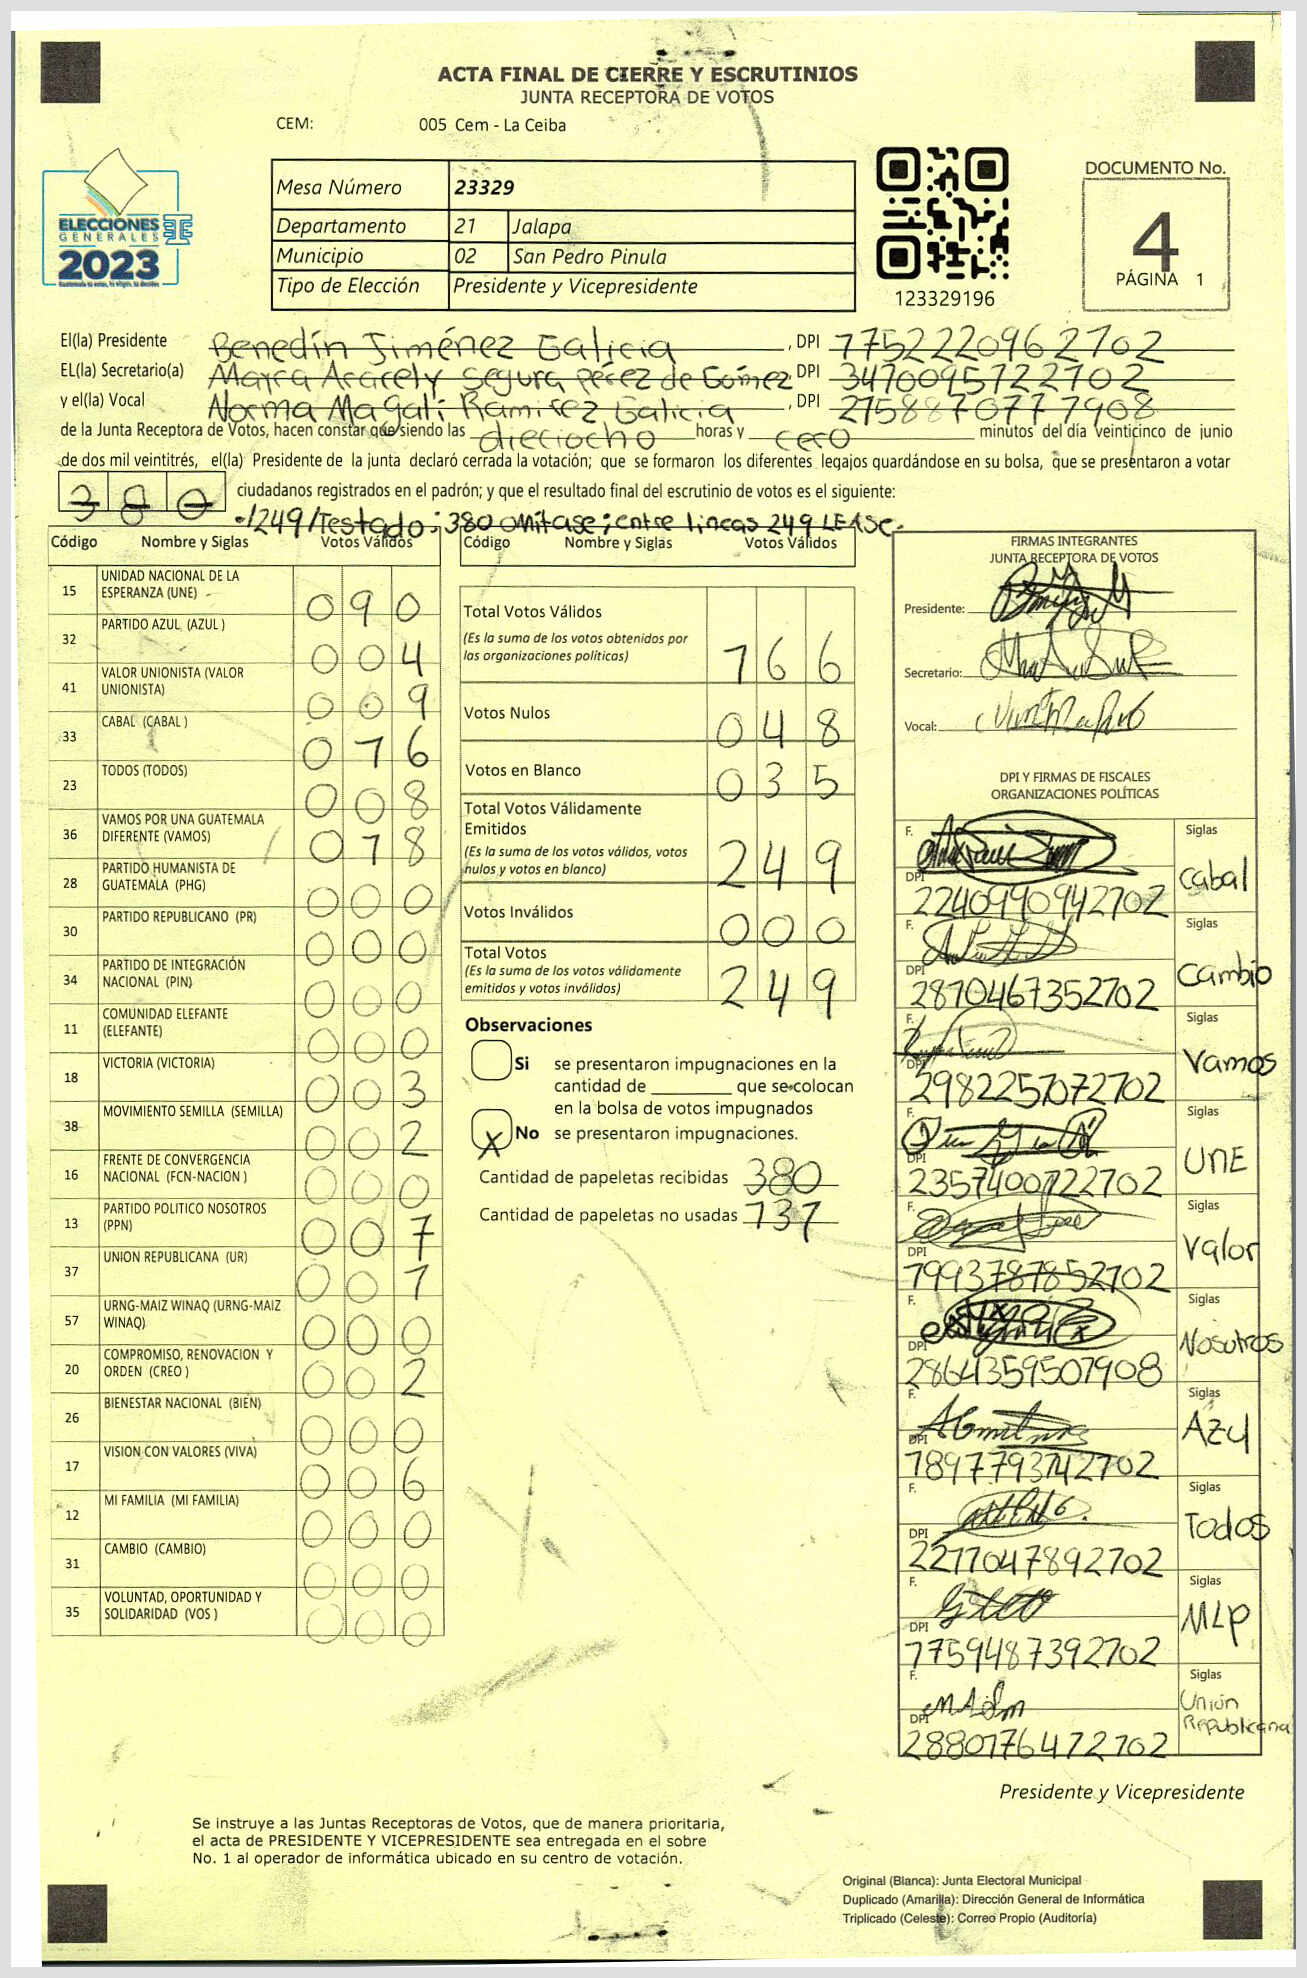 ACTA FINAL DE CIERRE Y ESCRUTINIOS
JUNTA RECEPTORA DE VOTOS
CEM: 005 Cem - La Ceiba
ELECCIONES
GENERALES
2023
Mesa Número 23329
Departamento 21 Jalapa
Municipio 02 San Pedro Pinula
Tipo de Elección Presidente y Vicepresidente
123329196
DOCUMENTO No.
4
PÁGINA 1
El(la) Presidente Benedín Jiménez Galicia, DPI 1752220962102
EL(la) Secretario(a) Mayra Aracely Segura pérez de Gómez DPI
y el(la) Vocal Norma Magalí Ramirez Galicia, DPI
de la Junta Receptora de Votos, hacen constar que siendo las dieciocho horas y cero minutos del día veinticinco de junio
de dos mil veintitrés, el(la) Presidente de la junta declaró cerrada la votación; que se formaron los diferentes legajos guardándose en su bolsa, que se presentaron a votar
380 ciudadanos registrados en el padrón; y que el resultado final del escrutinio de votos es el siguiente:
-/249/Testado: 380 omitase; entre lineas 249 LEASE.
Código Nombre y Siglas Votos Válidos
15 UNIDAD NACIONAL DE LA ESPERANZA (UNE) 090
32 PARTIDO AZUL (AZUL ) 004
41 VALOR UNIONISTA (VALOR UNIONISTA) 009
33 CABAL (CABAL ) 016
23 TODOS (TODOS) 008
36 VAMOS POR UNA GUATEMALA DIFERENTE (VAMOS) 018
28 PARTIDO HUMANISTA DE GUATEMALA (PHG) 000
30 PARTIDO REPUBLICANO (PR) 000
34 PARTIDO DE INTEGRACIÓN NACIONAL (PIN) 000
11 COMUNIDAD ELEFANTE (ELEFANTE) 000
18 VICTORIA (VICTORIA) 003
38 MOVIMIENTO SEMILLA (SEMILLA) 002
16 FRENTE DE CONVERGENCIA NACIONAL (FCN-NACION ) 000
13 PARTIDO POLITICO NOSOTROS (PPN) 007
37 UNION REPUBLICANA (UR) 001
57 URNG-MAIZ WINAQ (URNG-MAIZ WINAQ) 000
20 COMPROMISO, RENOVACION Y ORDEN (CREO ) 002
26 BIENESTAR NACIONAL (BIEN) 000
17 VISION CON VALORES (VIVA) 006
12 MI FAMILIA (MI FAMILIA) 000
31 CAMBIO (CAMBIO) 000
35 VOLUNTAD, OPORTUNIDAD Y SOLIDARIDAD (VOS ) 000
Código Nombre y Siglas Votos Válidos
Total Votos Válidos 166
(Es la suma de los votos obtenidos por
las organizaciones políticas)
Votos Nulos 048
Votos en Blanco 035
Total Votos Válidamente
Emitidos 249
(Es la suma de los votos válidos, votos
nulos y votos en blanco)
Votos Inválidos 000
Total Votos 249
(Es la suma de los votos válidamente
emitidos y votos inválidos)
Observaciones
Si se presentaron impugnaciones en la
cantidad de ________ que se colocan
en la bolsa de votos impugnados
X No se presentaron impugnaciones.
Cantidad de papeletas recibidas 380
Cantidad de papeletas no usadas 131
FIRMAS INTEGRANTES
JUNTA RECEPTORA DE VOTOS
Presidente:
Secretario:
Vocal:
DPI Y FIRMAS DE FISCALES
ORGANIZACIONES POLÍTICAS
F. Siglas
DPI 2240990942102 Cabal
F. Siglas
DPI 2810467352102 Cambio
F. Siglas
DPI 2982257072102 Vamos
F. Siglas
DPI 2357400722102 UNE
F. Siglas
DPI 1993787852102 Valor
F. Siglas
DPI 2864359501908 Nosotros
F. Siglas
DPI 1897793742102 AZUl
F. Siglas
DPI 2217047892102 Todos
F. Siglas
DPI 1759487392102 MLP
F. Siglas
DPI 2880176472102 Unión Republicana
Presidente y Vicepresidente
Se instruye a las Juntas Receptoras de Votos, que de manera prioritaria,
el acta de PRESIDENTE Y VICEPRESIDENTE sea entregada en el sobre
No. 1 al operador de informática ubicado en su centro de votación.
Original (Blanca): Junta Electoral Municipal
Duplicado (Amarilla): Dirección General de Informática
Triplicado (Celeste): Correo Propio (Auditoría)